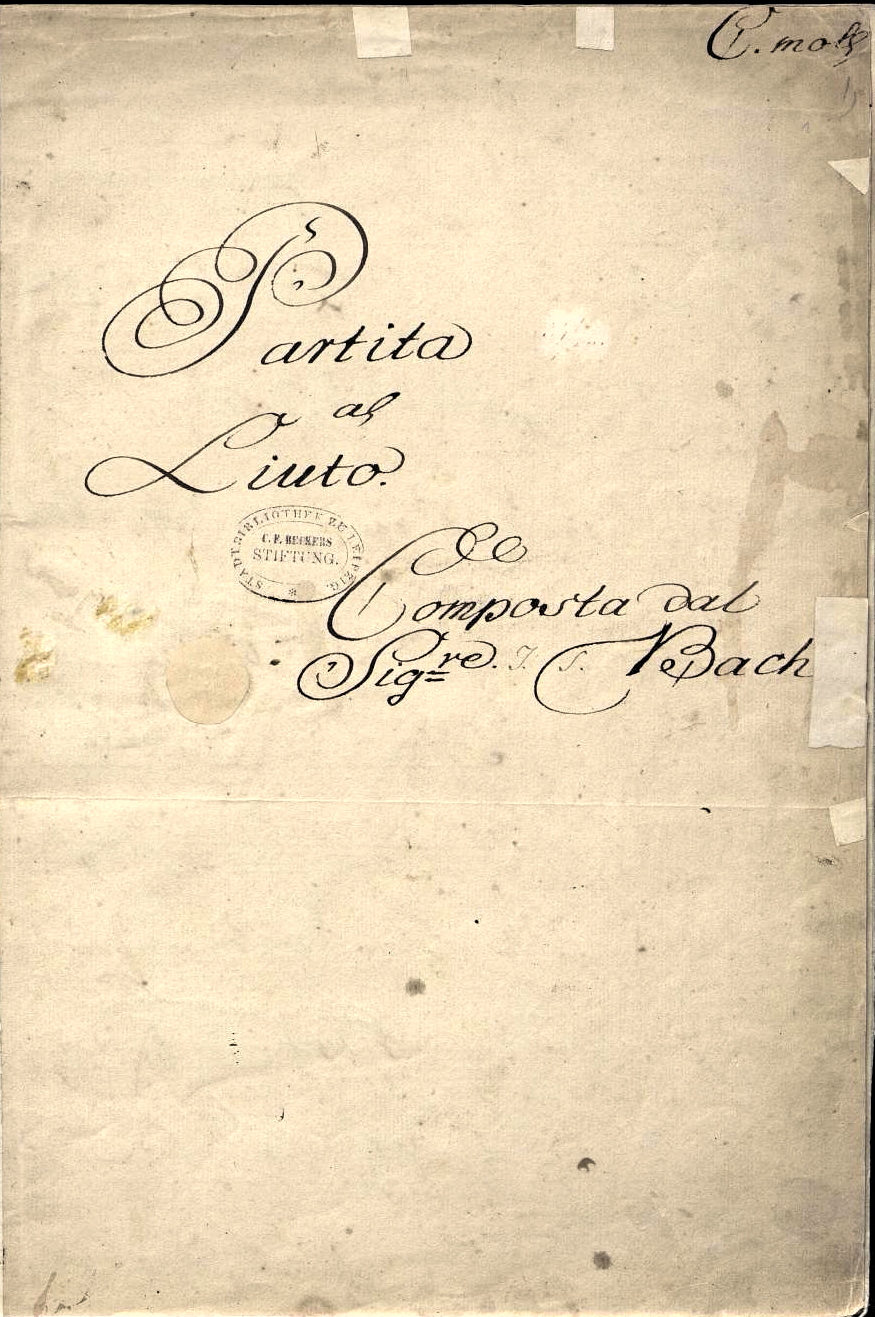 C. moll
Partita
al
Liuto.
STADTBIBLIOTHEK ZU LEIPZIG.
C. F. BECKERS
STIFTUNG.
*
Composta dal
Sigre. J. S. Bach